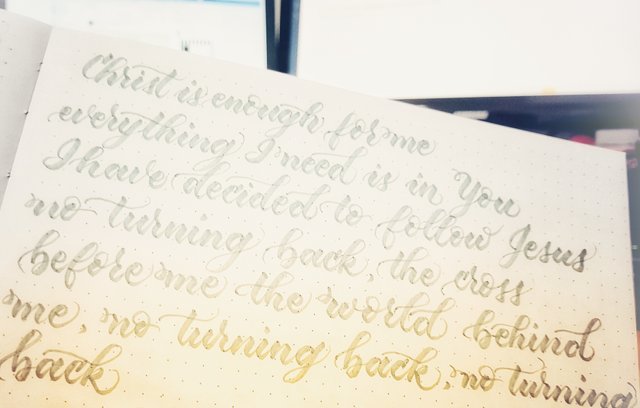 Christ is enough for me
everything I need is in You
I have decided to follow Jesus
no turning back, the cross
before me the world behind
me, no turning back, no turning
back